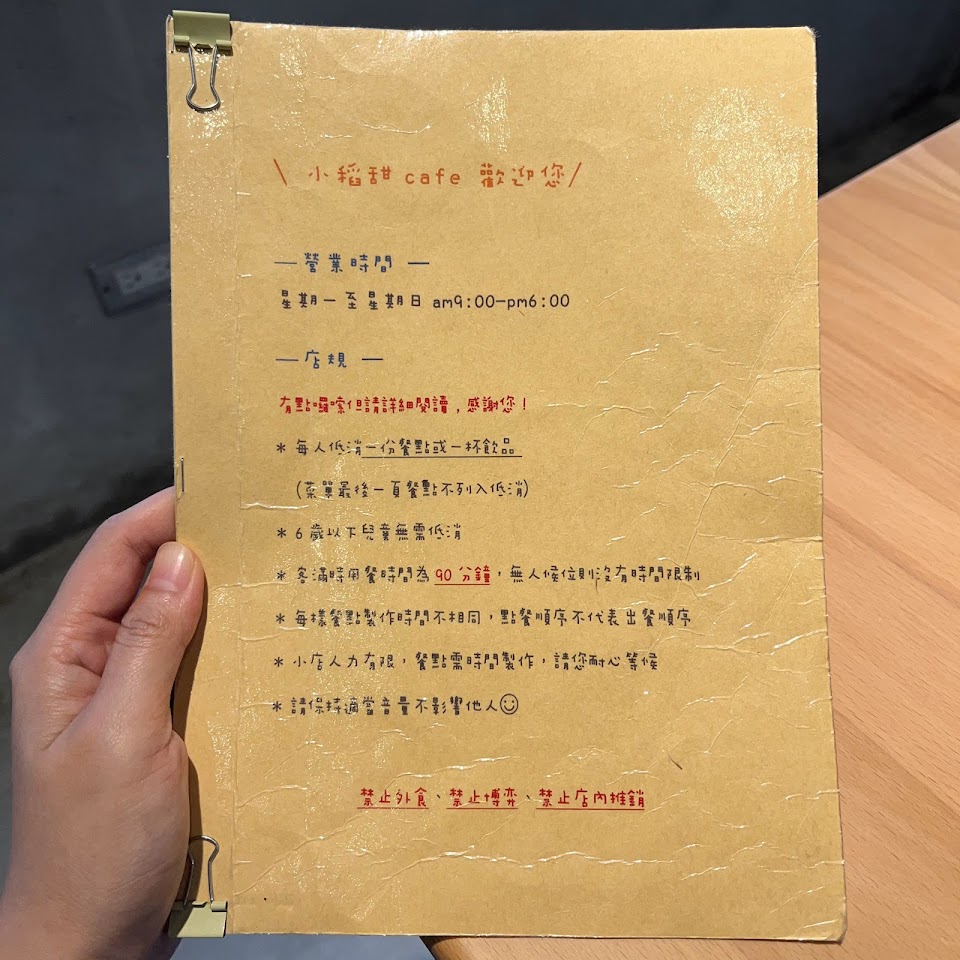 \ 小稻甜 cafe 歡迎您/
— 營業時間 —
星期一至星期日 am9:00-pm6:00
— 店規 —
有點囉嗦但請詳細閱讀，感謝您！
* 每人低消一份餐點或一杯飲品
(菜單最後一頁餐點不列入低消)
* 6 歲以下兒童無需低消
* 客滿時用餐時間為 90 分鐘，無人候位則沒有時間限制
* 每樣餐點製作時間不相同，點餐順序不代表出餐順序
* 小店人力有限，餐點需時間製作，請您耐心等候
* 請保持適當音量不影響他人☺
禁止外食、禁止博弈、禁止店內推銷